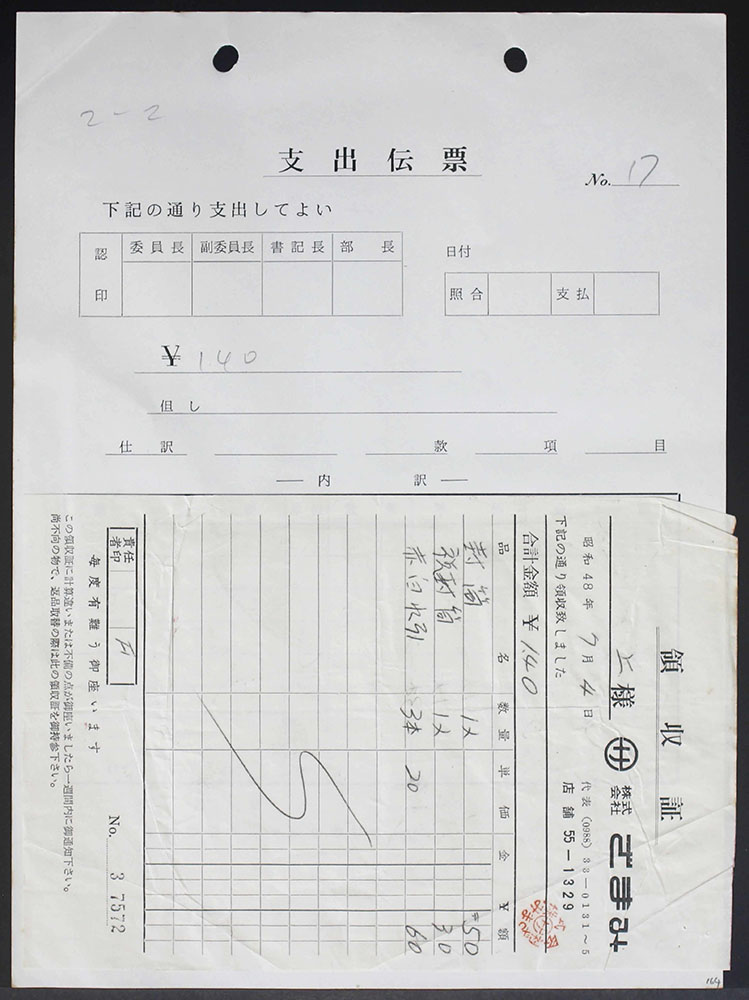 2-2
支出伝票
No. 17
下記の通り支出してよい
認印 委員長 副委員長 書記長 部長
日付
照合 支払
¥ 140
但し
仕訳 款 項 目
内訳
領収証
上様
昭和48年7月4日
下記の通り領収致しました
合計金額 ¥ 140
株式会社 ざまみ
代表 (0988) 33-0131~5
店舗 55-1329
品名 数量 単価 金額
封筒 1〆 ¥50
祝封筒 1〆 30
赤白水引 3本 20 60
責任者印
毎度有難う御座います
No. 37572
この領収証に計算違いまたは不備の点が御座いましたら一週間内に御通知下さい。
尚不向の物で、返品取替の際は此の領収証を御持参下さい。
164